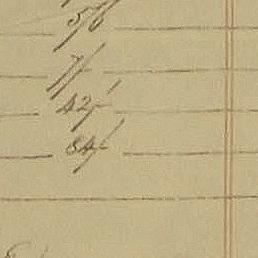 5/6
7/-
42/-
84/-